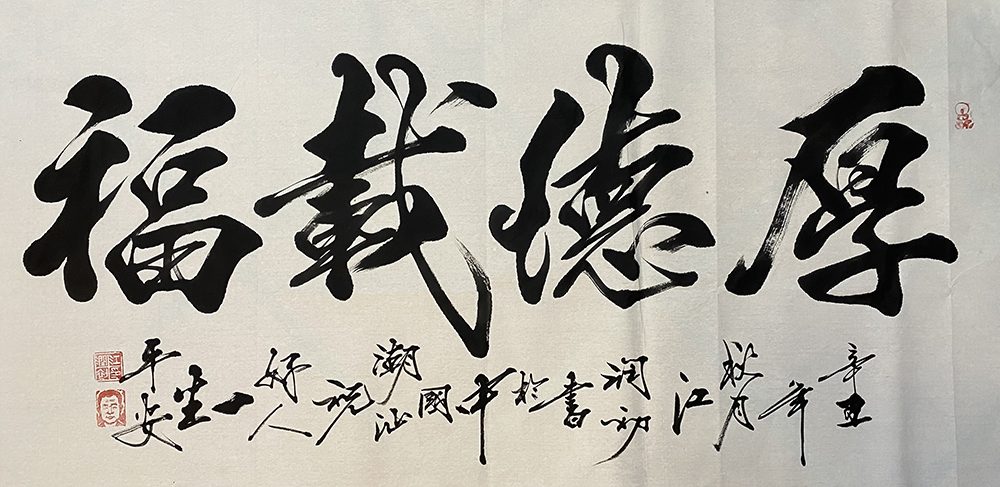 厚德載福
辛丑年秋月江润初書於中國潮汕祝好人一生平安